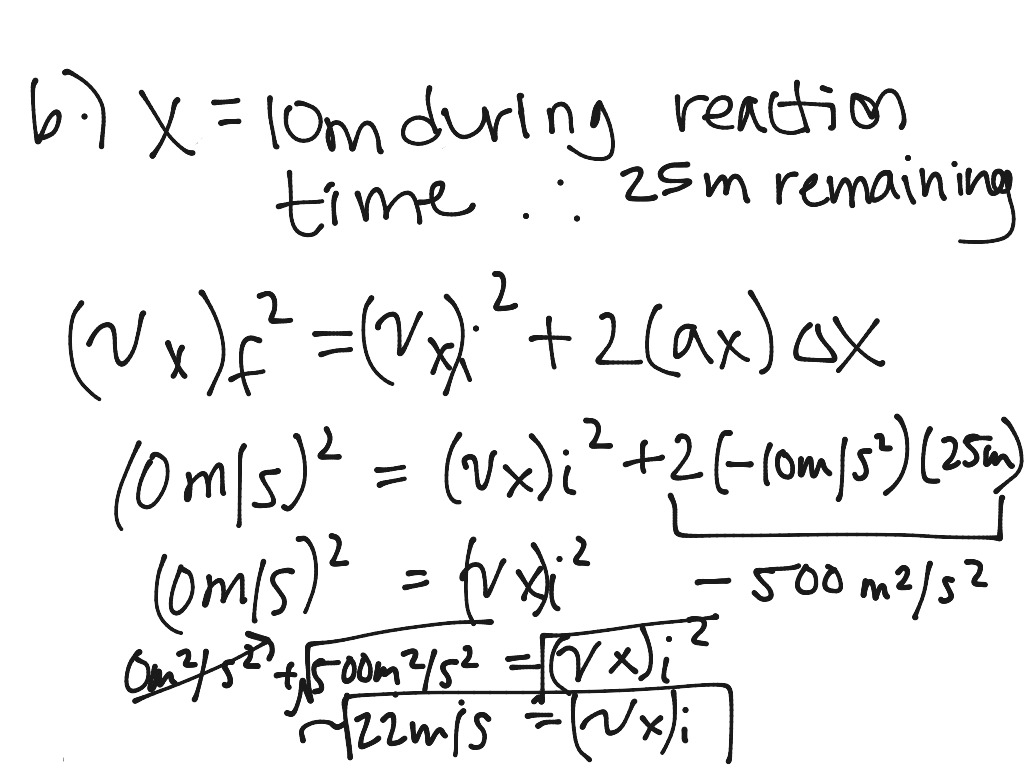 b.) X = 10m during reaction
time ∴ 25m remaining
(vx)f² = (vx)i² + 2(ax)Δx
(0m/s)² = (vx)i² + 2(-10m/s²)(25m)
(0m/s)² = (vx)i² - 500 m²/s²
0m²/s² + √500m²/s² = √(vx)i²
~22m/s = (vx)i